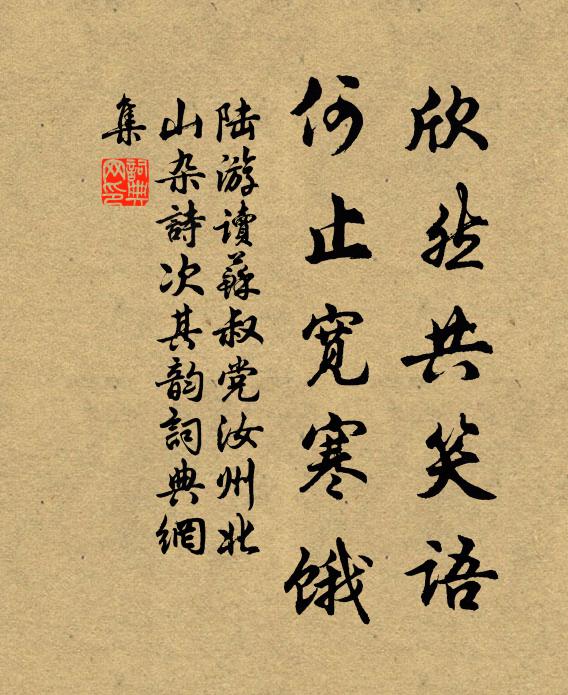 欣然共笑语
何止宽寒饿
陆游读蘇叔党汝州北
山杂詩次其韵詞典網
集
詞典
网印